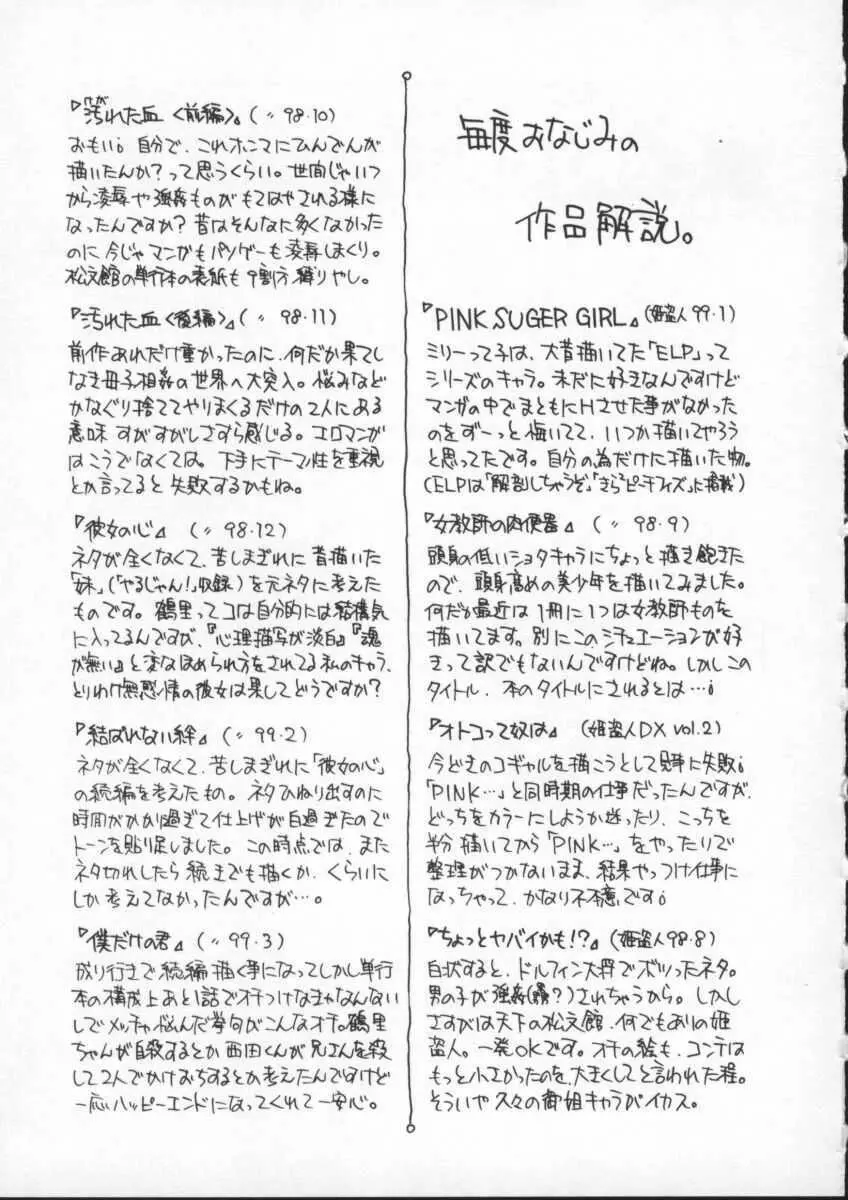 毎度おなじみの
作品解説。
『PINK SUGER GIRL』(姫盗人99・1)
ミリーって子は、大昔描いてた「ELP」って
シリーズのキャラ。未だに好きなんですけど
マンガの中でまともにHさせた事がなかった
のをずーっと悔いてて、いつか描いてやろう
と思ってたです。自分の為だけに描いた物。
(ELPは「解剖しちゃうぞ」「きらピーチフィズ」に掲載)
『女教師の肉便器』(〃 98・9)
頭身の低いショタキャラにちょっと描き飽きた
ので、頭身高めの美少年を描いてみました。
何だか最近は1冊に1つは女教師ものを
描いてます。別にこのシチュエーションが好
きって訳でもないんですけどね。しかしこの
タイトル、本のタイトルにされるとは…!
『オトコって奴は』(姫盗人DX vol.2)
今どきのコギャルを描こうとして見事に失敗!
「PINK…」と同時期の仕事だったんですが、
どっちをカラーにしようか迷ったり、こっちを
半分描いてから「PINK…」をやったりで
整理がつかないまま、結果やっつけ仕事に
なっちゃって、かなり不本意です!
『ちょっとヤバイかも!?』(姫盗人98・8)
白状すると、ドルフィン大将でボツったネタ。
男の子が強姦(?)されちゃうから。しかし
さすがは天下の松文館、何でもありの姫
盗人。一発OKです。オチの絵も、コンテは
もっと小さかったのを、大きくしてと言われた程。
そういや久々の御姐キャラがイカス。
『汚れた血〈前編〉』(〃 98・10)
おもい! 自分で、これホンマにひんでんが
描いたんか?って思うくらい。世間じゃいつ
から凌辱や強姦ものがもてはやされる様に
なったんですか?昔はそんなに多くなかった
のに今じゃマンガもパソゲーも凌辱しまくり。
松文館の単行本の表紙も9割方縛りやし。
『汚れた血〈後編〉』(〃 98・11)
前作あれだけ重かったのに、何だか果てし
なき母子相姦の世界へ大突入。悩みなど
かなぐり捨ててやりまくるだけの2人にある
意味すがすがしさすら感じる。エロマンガ
はこうでなくては。下手にテーマ性を重視
とか言ってると失敗するかもね。
『彼女の心』(〃 98・12)
ネタが全くなくて、苦しまぎれに昔描いた
「妹」(「やるじゃん!」収録)を元ネタに考えた
ものです。鶴里ってコは自分的には結構気
に入ってるんですが、『心理描写が淡白』『魂
が無い』と変なほめられ方をされてる私のキャラ、
とりわけ無感情の彼女は果してどうですか?
『結ばれない絆』(〃 99・2)
ネタが全くなくて、苦しまぎれに「彼女の心」
の続編を考えたもの。ネタひねり出すのに
時間がかかり過ぎて仕上げが白過ぎたので
トーンを貼り足しました。この時点では、また
ネタ切れしたら続きでも描くか、くらいに
しか考えてなかったんですが…。
『僕だけの君』(〃 99・3)
成り行きで続編描く事になってしかし単行
本の構成上あと1話でオチつけなきゃなんない
しでメッチャ悩んだ挙句がこんなオチ。鶴里
ちゃんが自殺するとか西田くんが兄さんを殺
して2人でかけおちするとか考えたんですけど
一応ハッピーエンドになってくれて一安心。